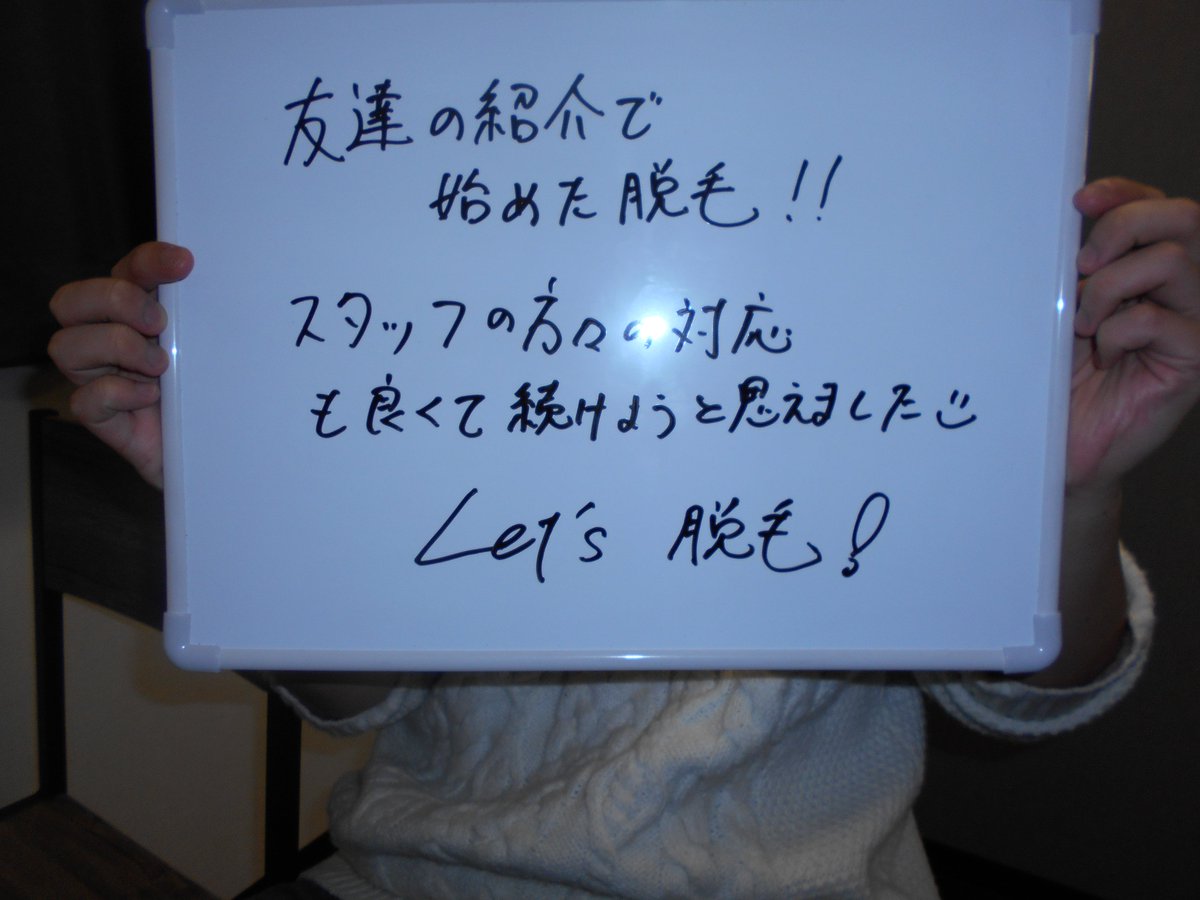 友達の紹介で
始めた脱毛!!
スタッフの方々の対応
も良くて続けようと思えました
Let's 脱毛!